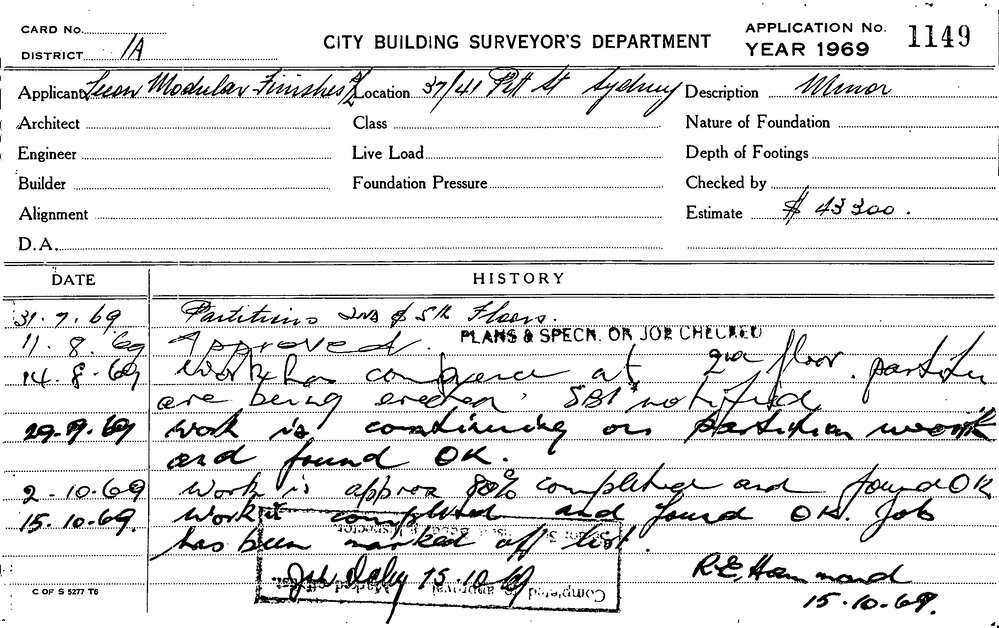 CARD No.
DISTRICT 1A
CITY BUILDING SURVEYOR'S DEPARTMENT
APPLICATION No. 1149
YEAR 1969
Applicant Modular Finishes P/L Location 37/41 Pitt St Sydney Description Minor
Architect Class Nature of Foundation
Engineer Live Load Depth of Footings
Builder Foundation Pressure Checked by
Alignment Estimate $ 43300.
D.A.
DATE HISTORY
31.7.69 Partitions 2nd & 5th Floors.
11.8.69 Approved. PLANS & SPECN. ON JOB CHECKED
14.8.69 Work has at 2nd floor. partitn
are being erected. SBI notified
29.9.69 Work is continuing on partition work
and found OK.
2.10.69 Work is approx 80% completed and found OK
15.10.69. Work is completed and found OK. Job
has been marked off list.
15.10.69
Completed
R.E. Hammond
15.10.69.
C OF S 5277 T6